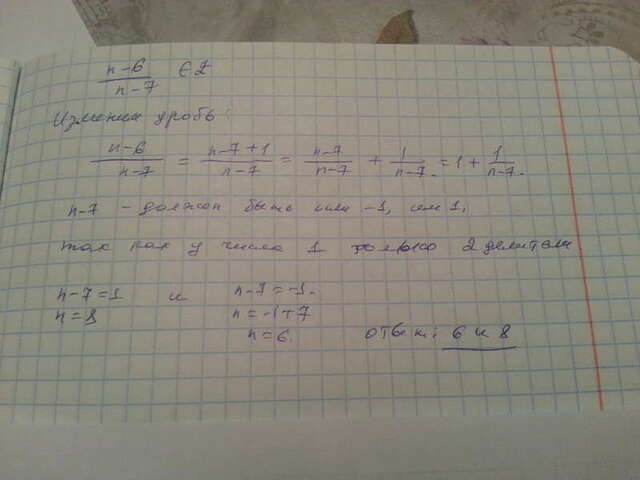 n-6/n-7 ∈Z
Изменим дробь:
n-6/n-7 = n-7+1/n-7 = n-7/n-7 + 1/n-7 = 1 + 1/n-7.
n-7 - должон быть или -1, или 1,
так как у числа 1 только 2 делителя
n-7=1 и n-7=-1.
n=8 n=-1+7
n=6.
ответ: 6 и 8